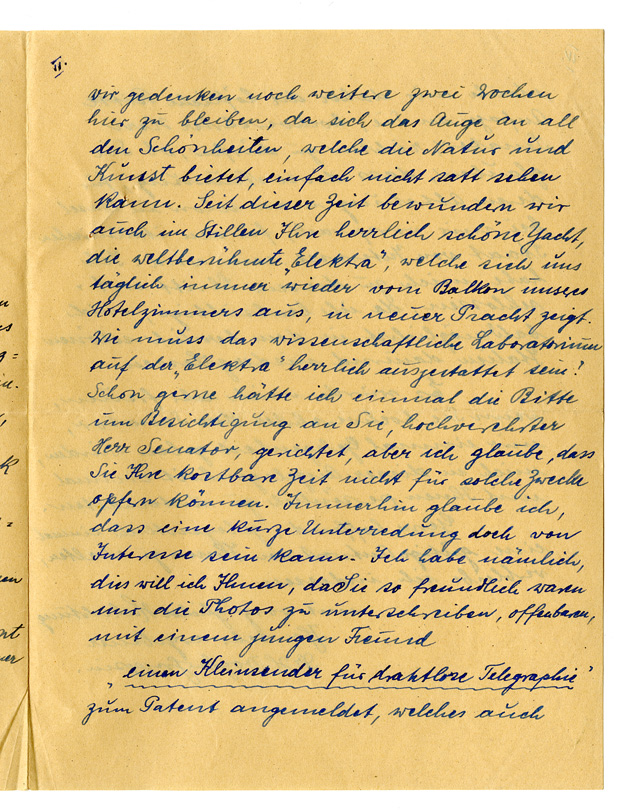 II.
wir gedenken noch weitere zwei Wochen
hier zu bleiben, da sich das Auge an all
den Schönheiten, welche die Natur und
Kunst bietet, einfach nicht satt sehen
kann. Seit dieser Zeit bewundern wir
auch im Stillen Ihre herrlich schöne Yacht,
die weltberühmte „Elektra", welche sich uns
täglich immer wieder vom Balkon unseres
Hotelzimmers aus, in neuer Pracht zeigt.
Wie muss das wissenschaftliche Laboratorium
auf der „Elektra" herrlich ausgestattet sein!
Schon gerne hätte ich einmal die Bitte
um Besichtigung an Sie, hochverehrter
Herr Senator, gerichtet, aber ich glaube, dass
Sie Ihre kostbare Zeit nicht für solche Zwecke
opfern können. Immerhin glaube ich,
dass eine kurze Unterredung doch von
Interesse sein kann. Ich habe nämlich,
dies will ich Ihnen, da Sie so freundlich waren
mir die Photos zu unterschreiben, offenbaren,
mit einem jungen Freund
„einen Kleinsender für drahtlose Telegraphie"
zum Patent angemeldet, welches auch